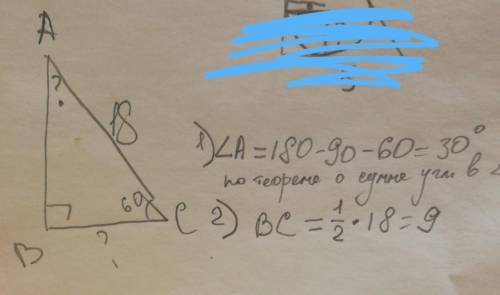 A
?
18
60
B
?
C
1) ∠A = 180 - 90 - 60 = 30°
по теореме о сумме угл в
2) BC = 1/2 · 18 = 9